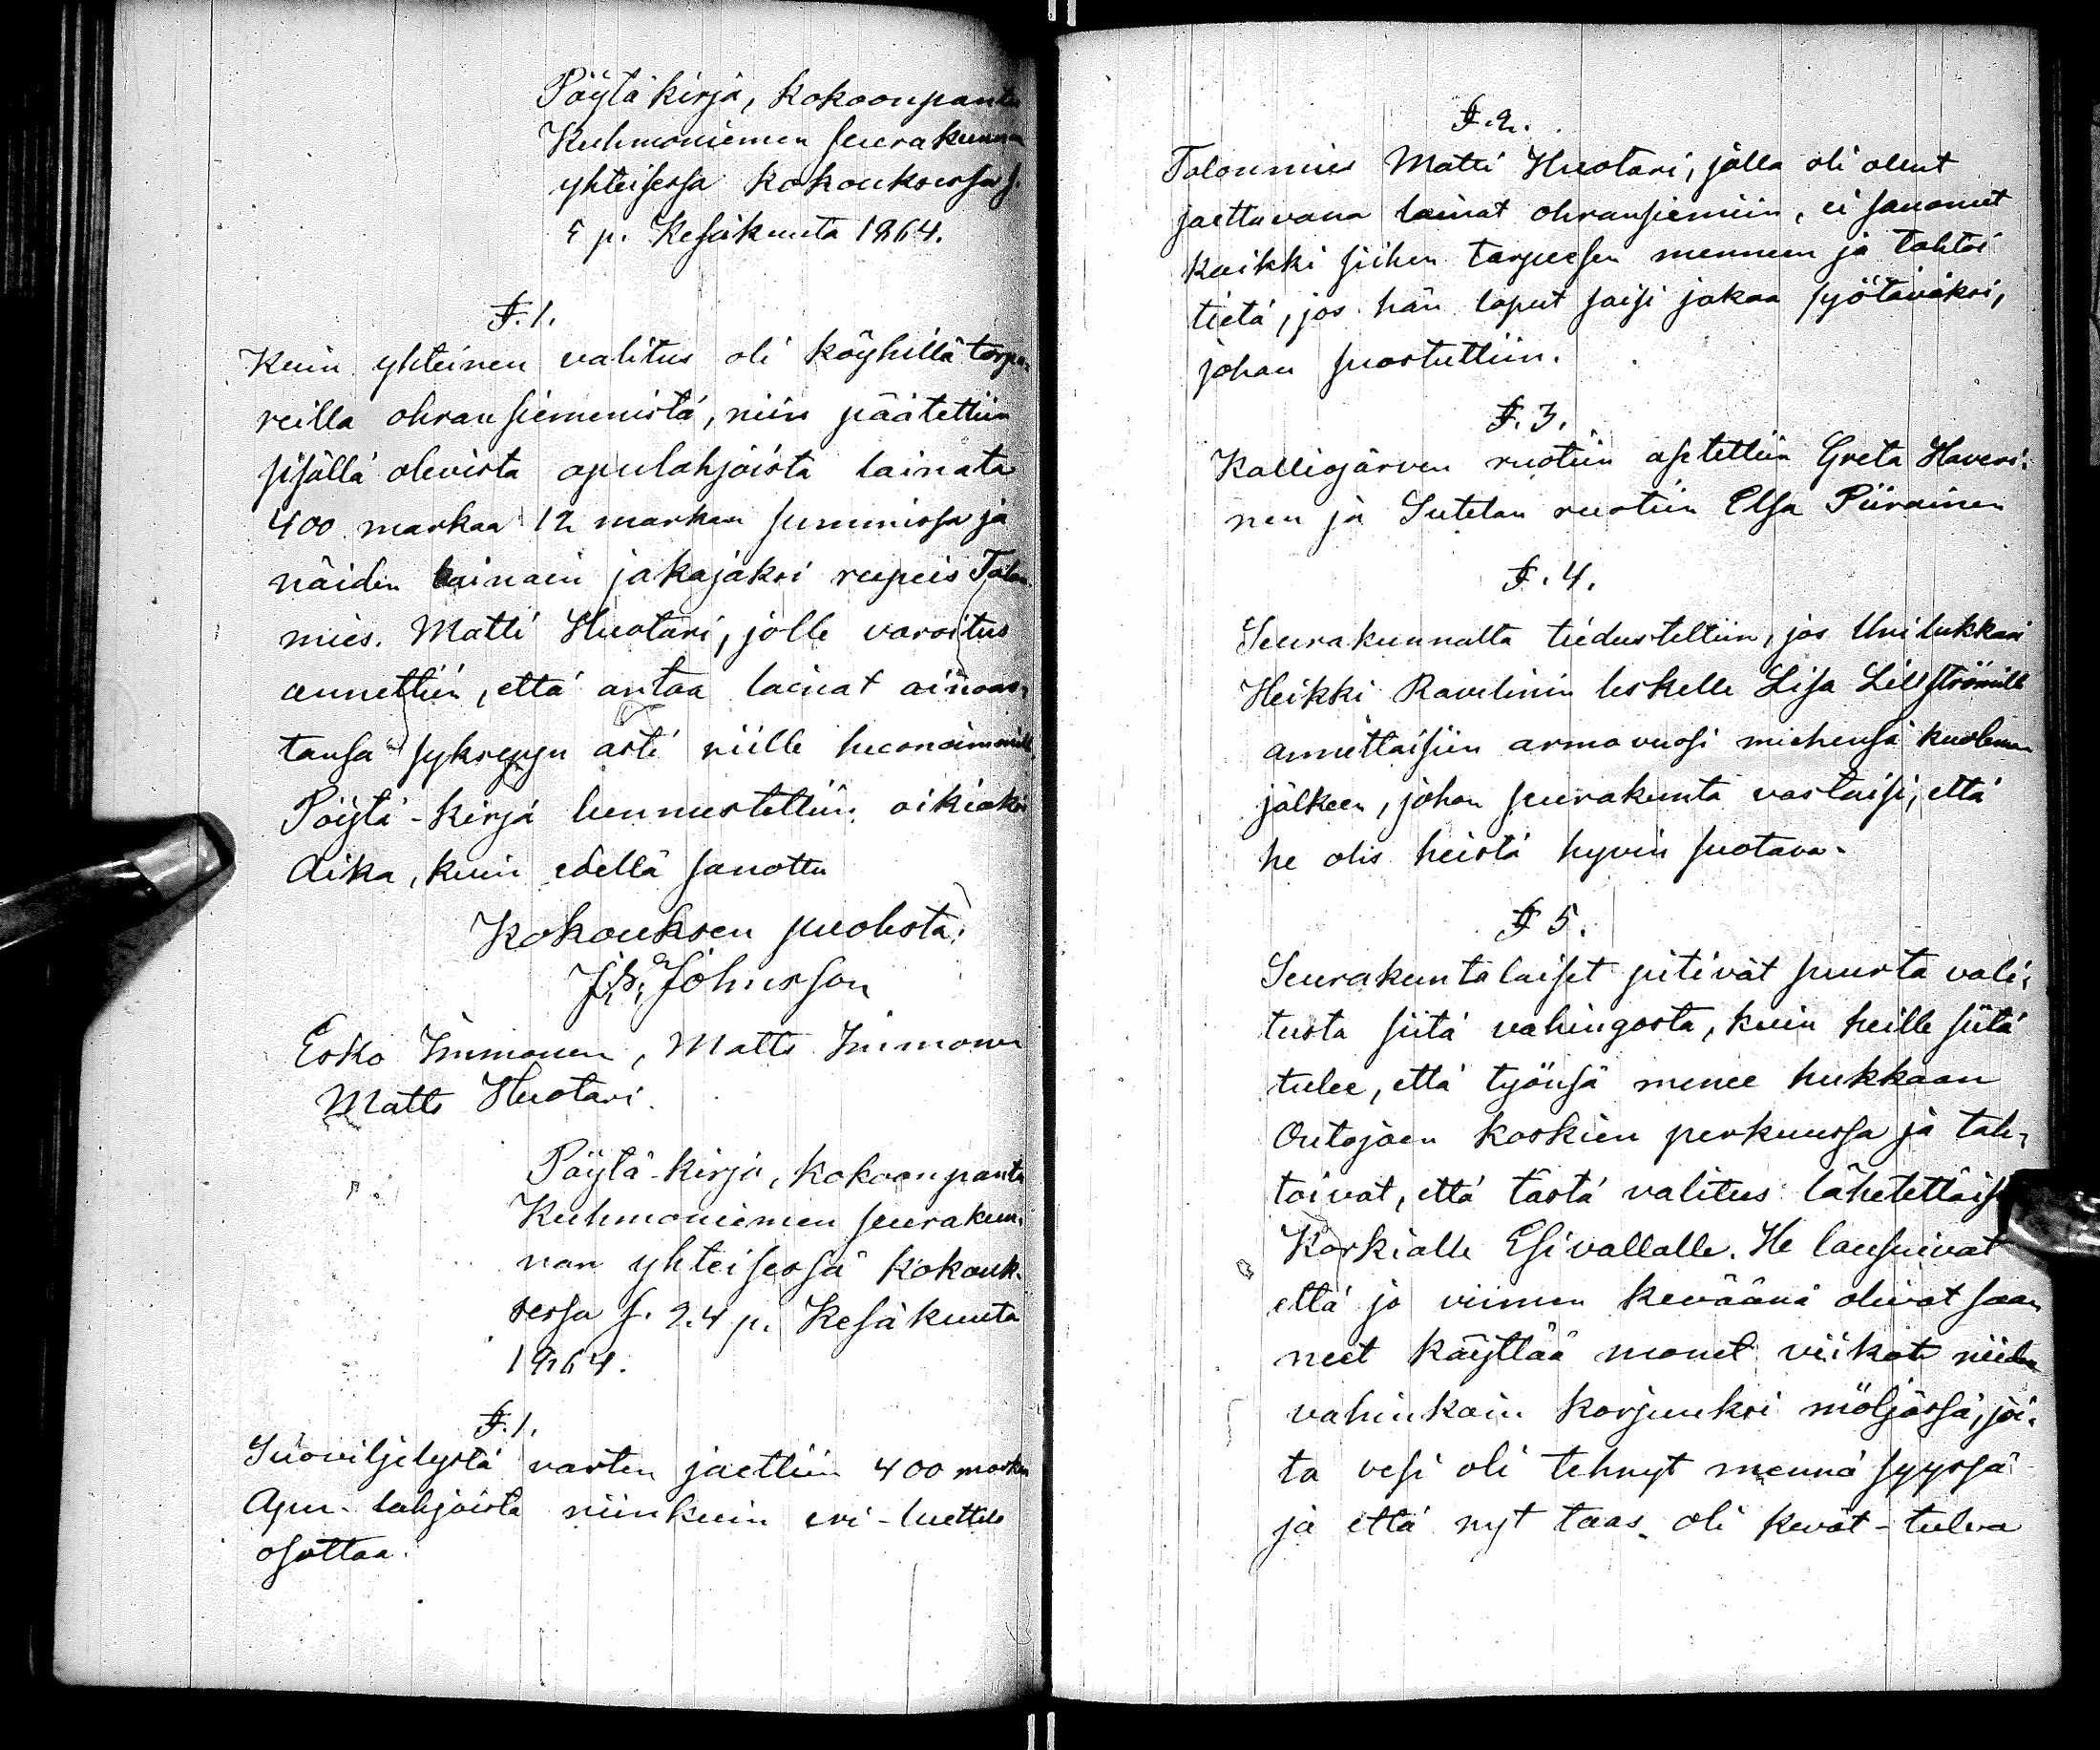 Pöytäkirja, kokoonpantu
Kuhmoniemen seurakunnan
yhteisessä kokouksessa s.
5 p. Kesäkuuta 1864.
§. 1.
Kuin yhteinen valitus oli köyhillä torpa-
reilla ohran siemenistä, niin päätettiin
sisällä olevista apulahjoista lainata
400 markaa 12 markan summissa ja
näiden lainain jakajaksi rupeis Talon
mies. Matti Huotari, jolle varoitus
annettiin, että antaa lainat ainoas-
tansa syksyyn asti niille
Pöytä-kirja tunnustettiin oikiaksi
Aika, kuin edellä sanottu
Kokouksen puolesta:
Johnsson
Esko Immonen, Matts Immonen
Matts Huotari.
Pöytä-kirja, kokoonpantu
Kuhmoniemen seurakun-
nan yhteisessä kokouk-
sessa s. 24 p. Kesäkuuta
1864.
§. 1.
Suoviljelystä varten jaettiin 400 markaa
Apu-lahjoista niinkuin eri-luettelo
osottaa.
§. 2.
Talonmies Matti Huotari, jolla oli ollut
jaettavana lainat ohransiemiin, ei sanonut
kaikki siihen tarpeesen menneen ja tahtoi
tietä, jos hän loput saisi jakaa syötäväksi,
johon suostuttiin.
§. 3.
Kalliojärven ruotiin asetettiin Greta Haveri-
nen ja Sutelan ruotiin Elsa Piirainen
§. 4.
Seurakunnalta tiedusteltiin, jos Unilukkari
Heikki Ravelinin leskelle Lisa Lillströmille
annettaisiin armovuosi miehensä kuoleman
jälkeen, johon seurakunta vastaisi, että
se olis heistä hyvin suotava.
§ 5.
Seurakuntalaiset pitivät suurta vali-
tusta siitä vahingosta, kuin heille siitä
tulee, että työnsä menee hukkaan
Ontojoen koskien perkuussa ja tah-
toivat, että tästä valitus lähetettäisi
Korkialle Esivallalle. He lausuivat
että jo viimen keväänä olivat saan
neet käyttää monet viikot niiden
vahinkoin korjuuksi möljässä, joi-
ta vesi oli tehnyt mennä syyssä
ja että nyt taas oli kevät-tulva